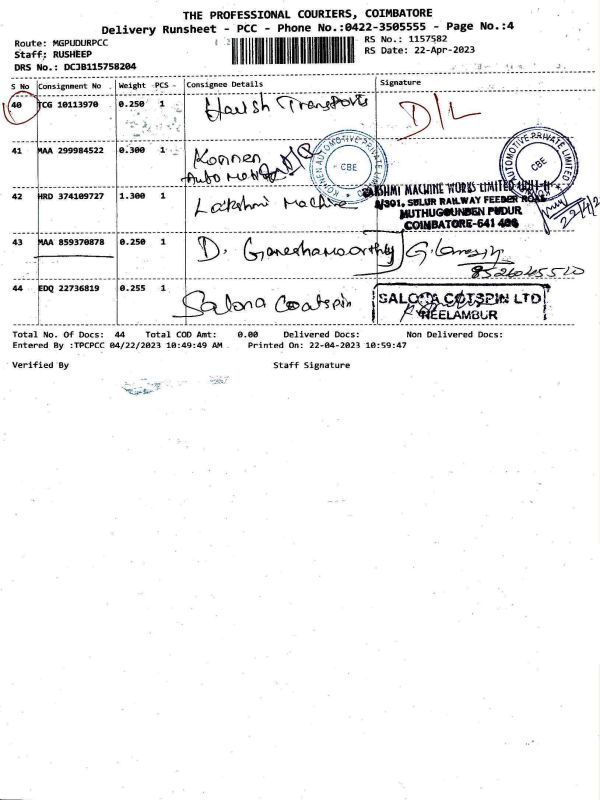 THE PROFESSIONAL COURIERS, COIMBATORE
Delivery Runsheet - PCC - Phone No.:0422-3505555 - Page No.:4
Route: MGPUDURPCC
RS No.: 1157582
Staff: RUSHEEP
RS Date: 22-Apr-2023
DRS No.: DCJB115758204
S No Consignment No Weight PCS Consignee Details Signature
40 TCG 10113970 0.250 1 Harish Transports D/L
41 MAA 299984522 0.300 1 Konnen
Automotive
KONNEN AUTOMOTIVE PRIVATE LIMITED CBE
AUTOMOTIVE PRIVATE LIMITED CBE
42 HRD 374109727 1.300 1 Lakshmi Machine
LAKSHMI MACHINE WORKS LIMITED UNIT-II
4/301, SULUR RAILWAY FEEDER ROAD
MUTHUGOUNDEN PUDUR
COIMBATORE-641 406
43 MAA 859370878 0.250 1 D. Ganeshamoorthy
44 EDQ 22736819 0.255 1 Salona Coatspin
SALONA COTSPIN LTD
NEELAMBUR
Total No. Of Docs: 44 Total COD Amt: 0.00 Delivered Docs: Non Delivered Docs:
Entered By :TPCPCC 04/22/2023 10:49:49 AM Printed On: 22-04-2023 10:59:47
Verified By Staff Signature